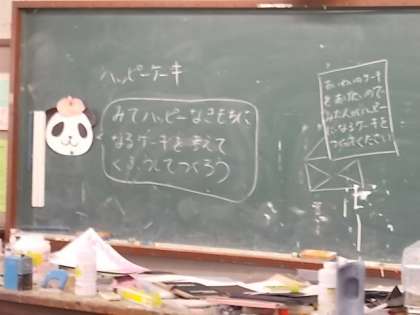 ハッピーケーキ
みてハッピーなきもちに
なるケーキを考えて
くふうしてつくろう
おいわいのケーキ
をあげたいので
みんながハッピー
になるケーキを
つくってください